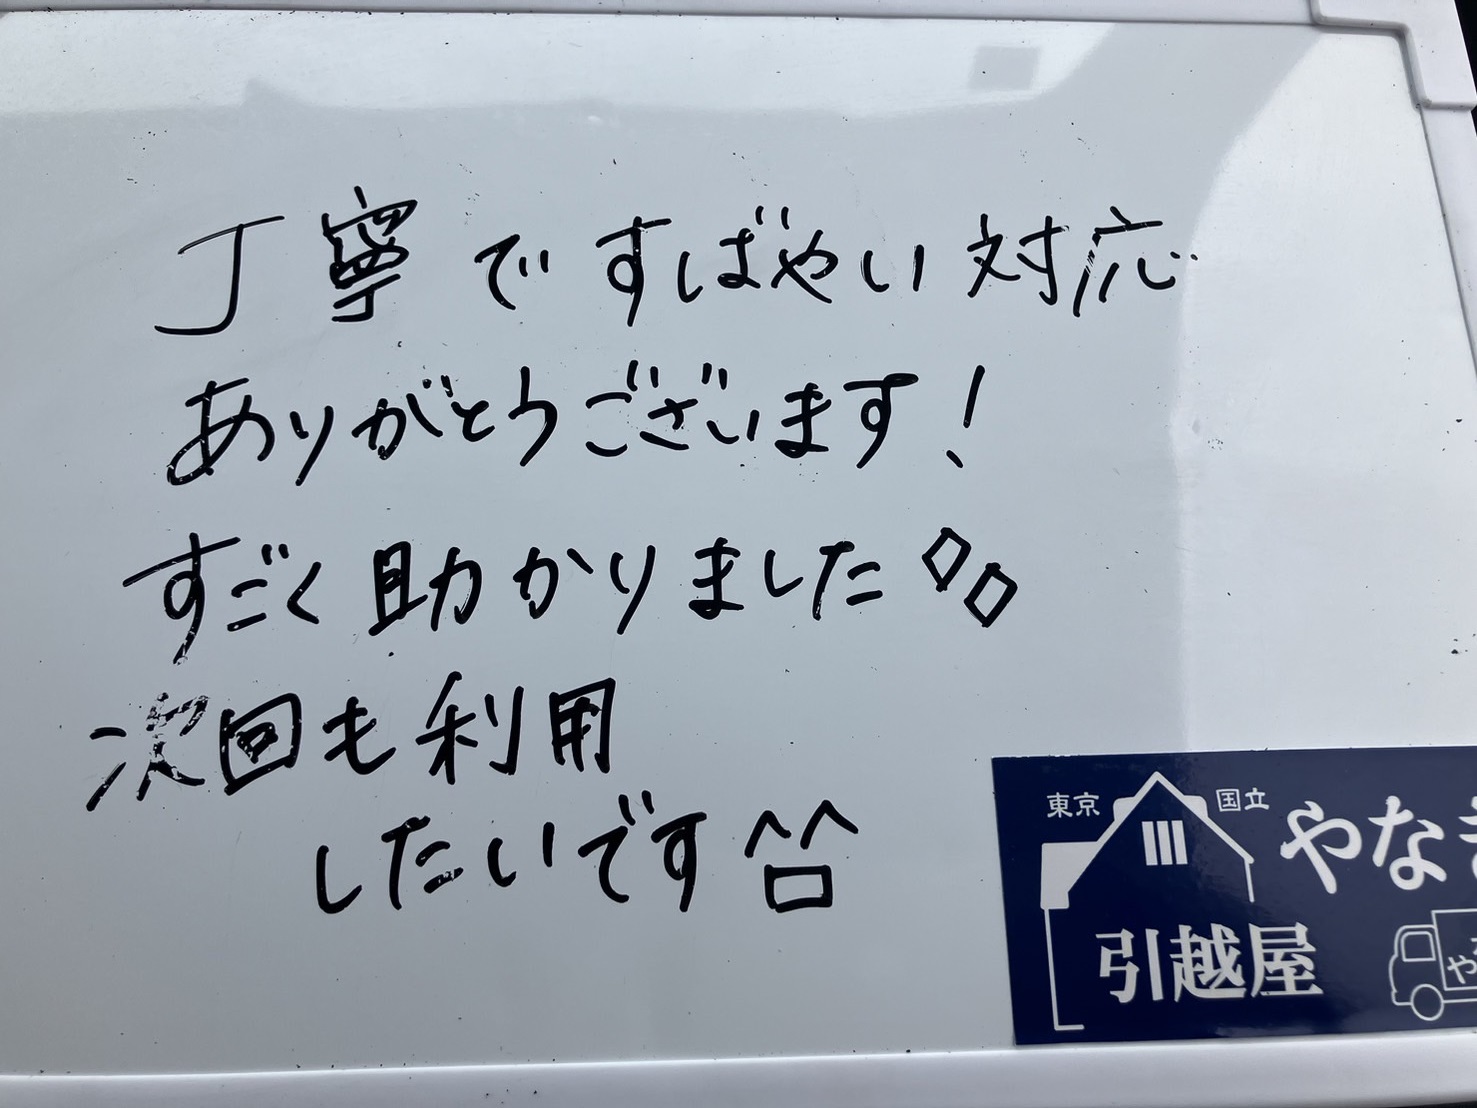 丁寧ですばやい対応
ありがとうございます!
すごく助かりました
次回も利用
したいです ^□^
東京 国立
やなぎ
引越屋
や